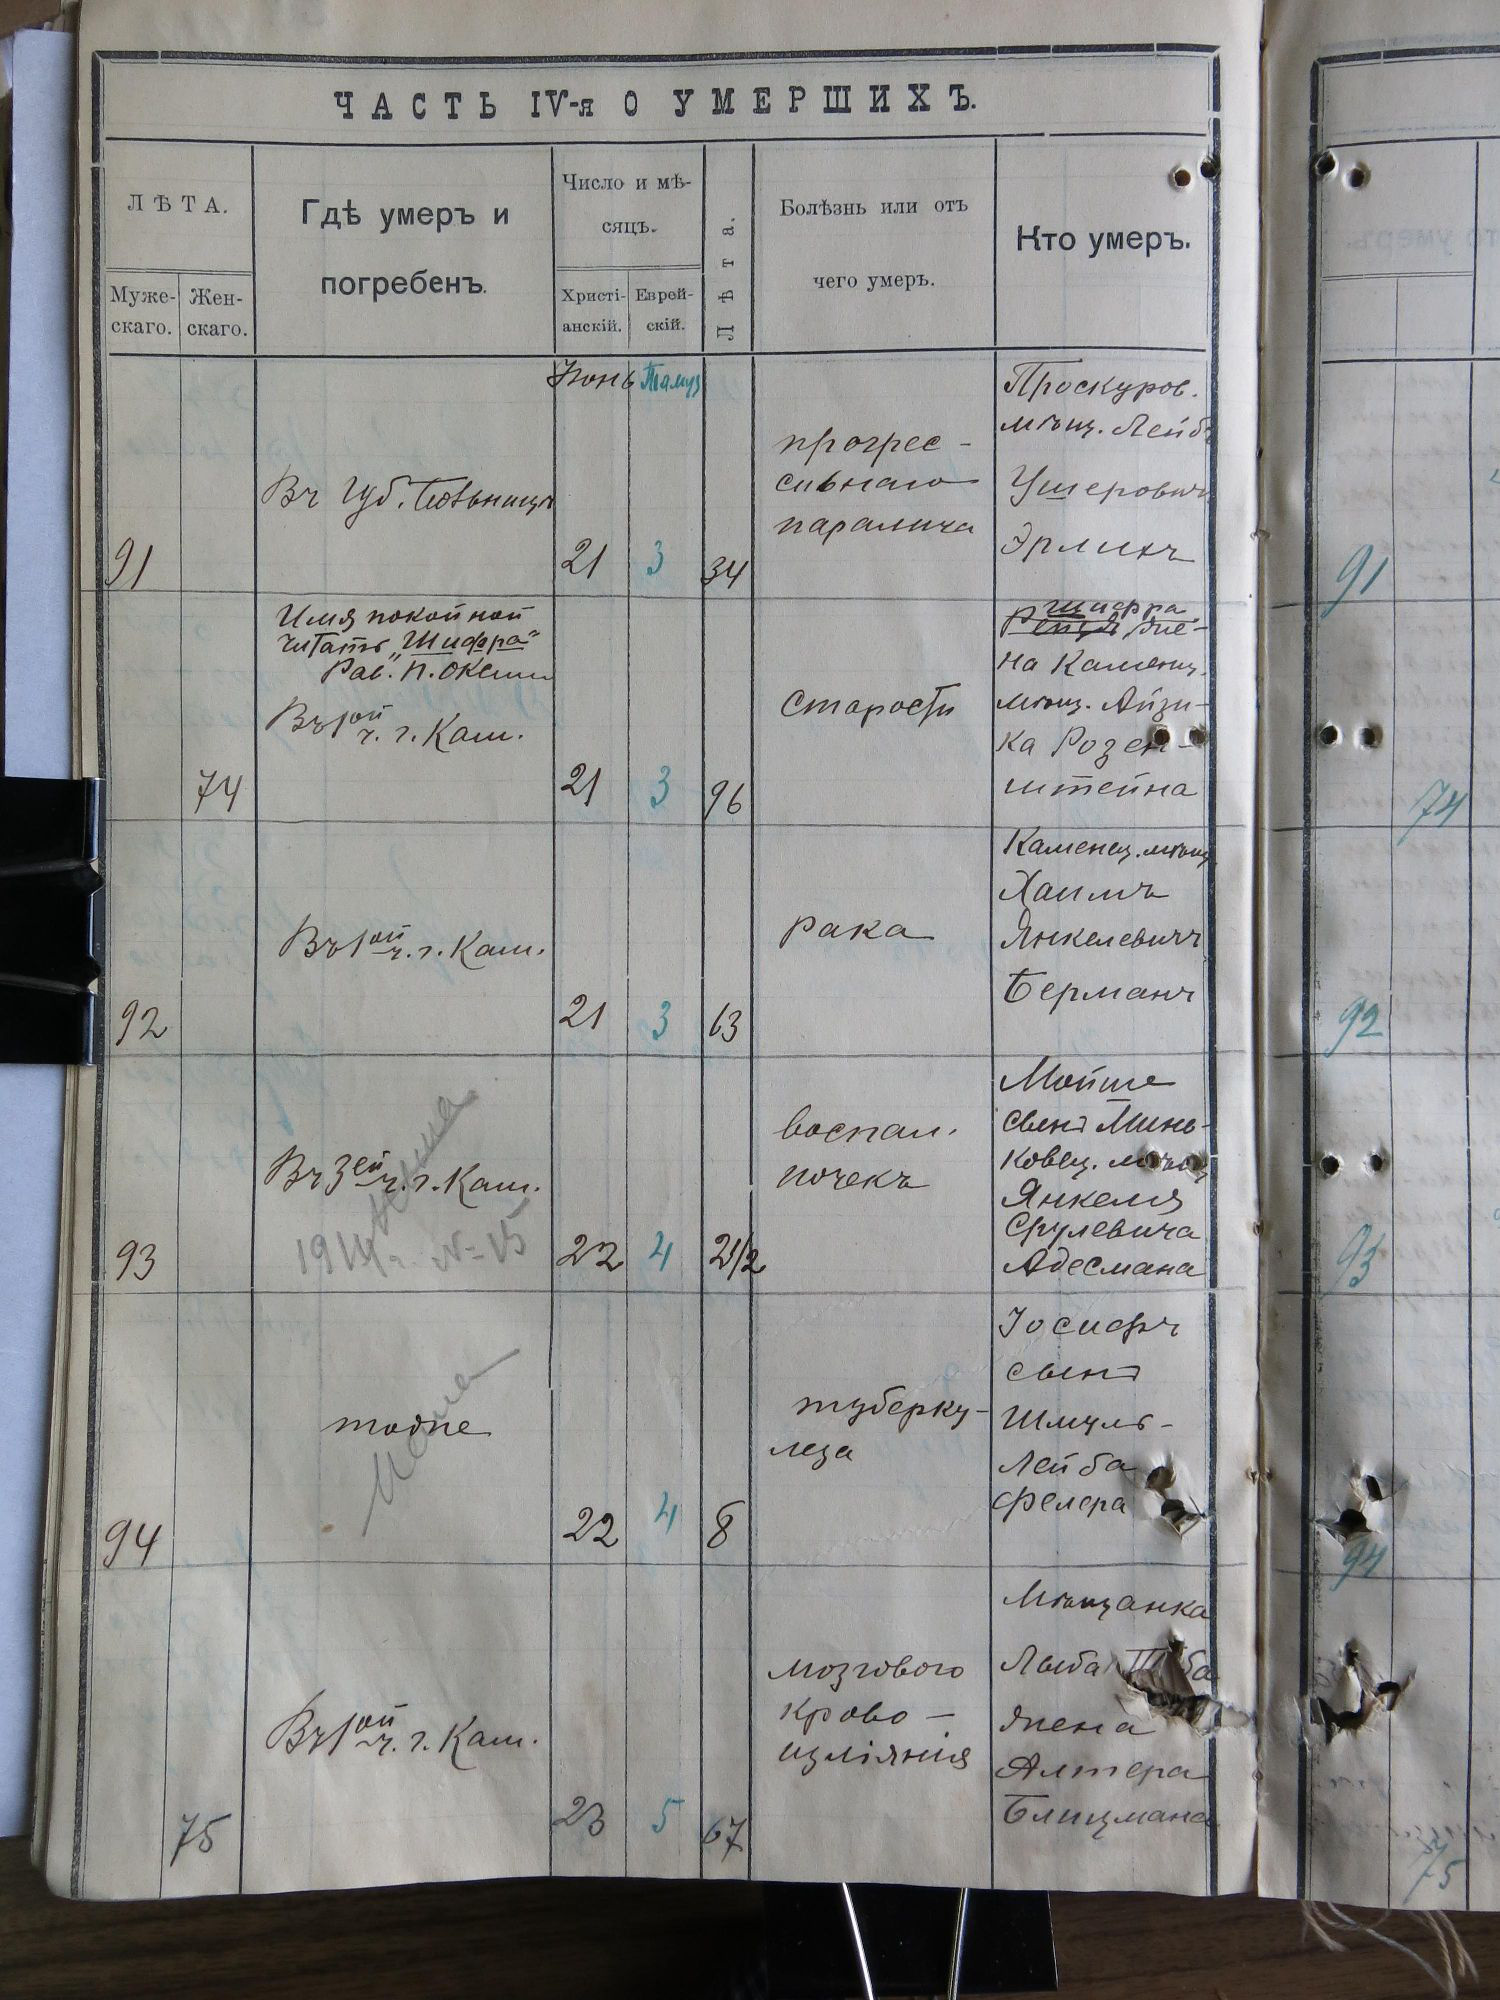 ЧАСТЬ IV-я О УМЕРШИХЪ.
ЛѢТА.
Муже-
скаго.
Жен-
скаго.
Гдѣ умеръ и
погребенъ.
Число и мѣ-
сяцъ.
Христі-
анскій.
Еврей-
скій.
Лѣта.
Болѣзнь или отъ
чего умеръ.
Кто умеръ.
Кто умеръ.
Іюнь Тамуз
91
Въ Губ. Больницѣ
21
3
34
прогрес-
сивнаго
паралича
Проскуров.
мѣщ. Лейба
Ушеровичъ
Эрлихъ
91
74
Имя покойной
читать „Шифра“
Рав.
Въ 1ой ч. г. Кам.
21
3
96
старости
Шифра
жe-
на Каменец.
мѣщ. Айзи-
ка Розен-
штейна
74
92
Въ 1ой ч. г. Кам.
21
3
63
рака
Каменец. мѣщ.
Хаимъ
Янкелевичъ
Берманъ
92
93
Въ 3ей ч. г. Кам.
1914 г. № 15
22
4
2 1/2
воспал.
почекъ
Мойше
сынъ Минь-
ковец. мѣщ.
Янкеля
Срулевича
Адесмана
93
94
тоже
22
4
8
туберку-
леза
Іосифъ
сынъ
Шмуль-
Лейба
Фелера
94
75
Въ 1ой ч. г. Кам.
23
5
67
мозгового
крово-
изліянія
Мѣщанка
Лыба
жена
Алтера
Блицмана
75